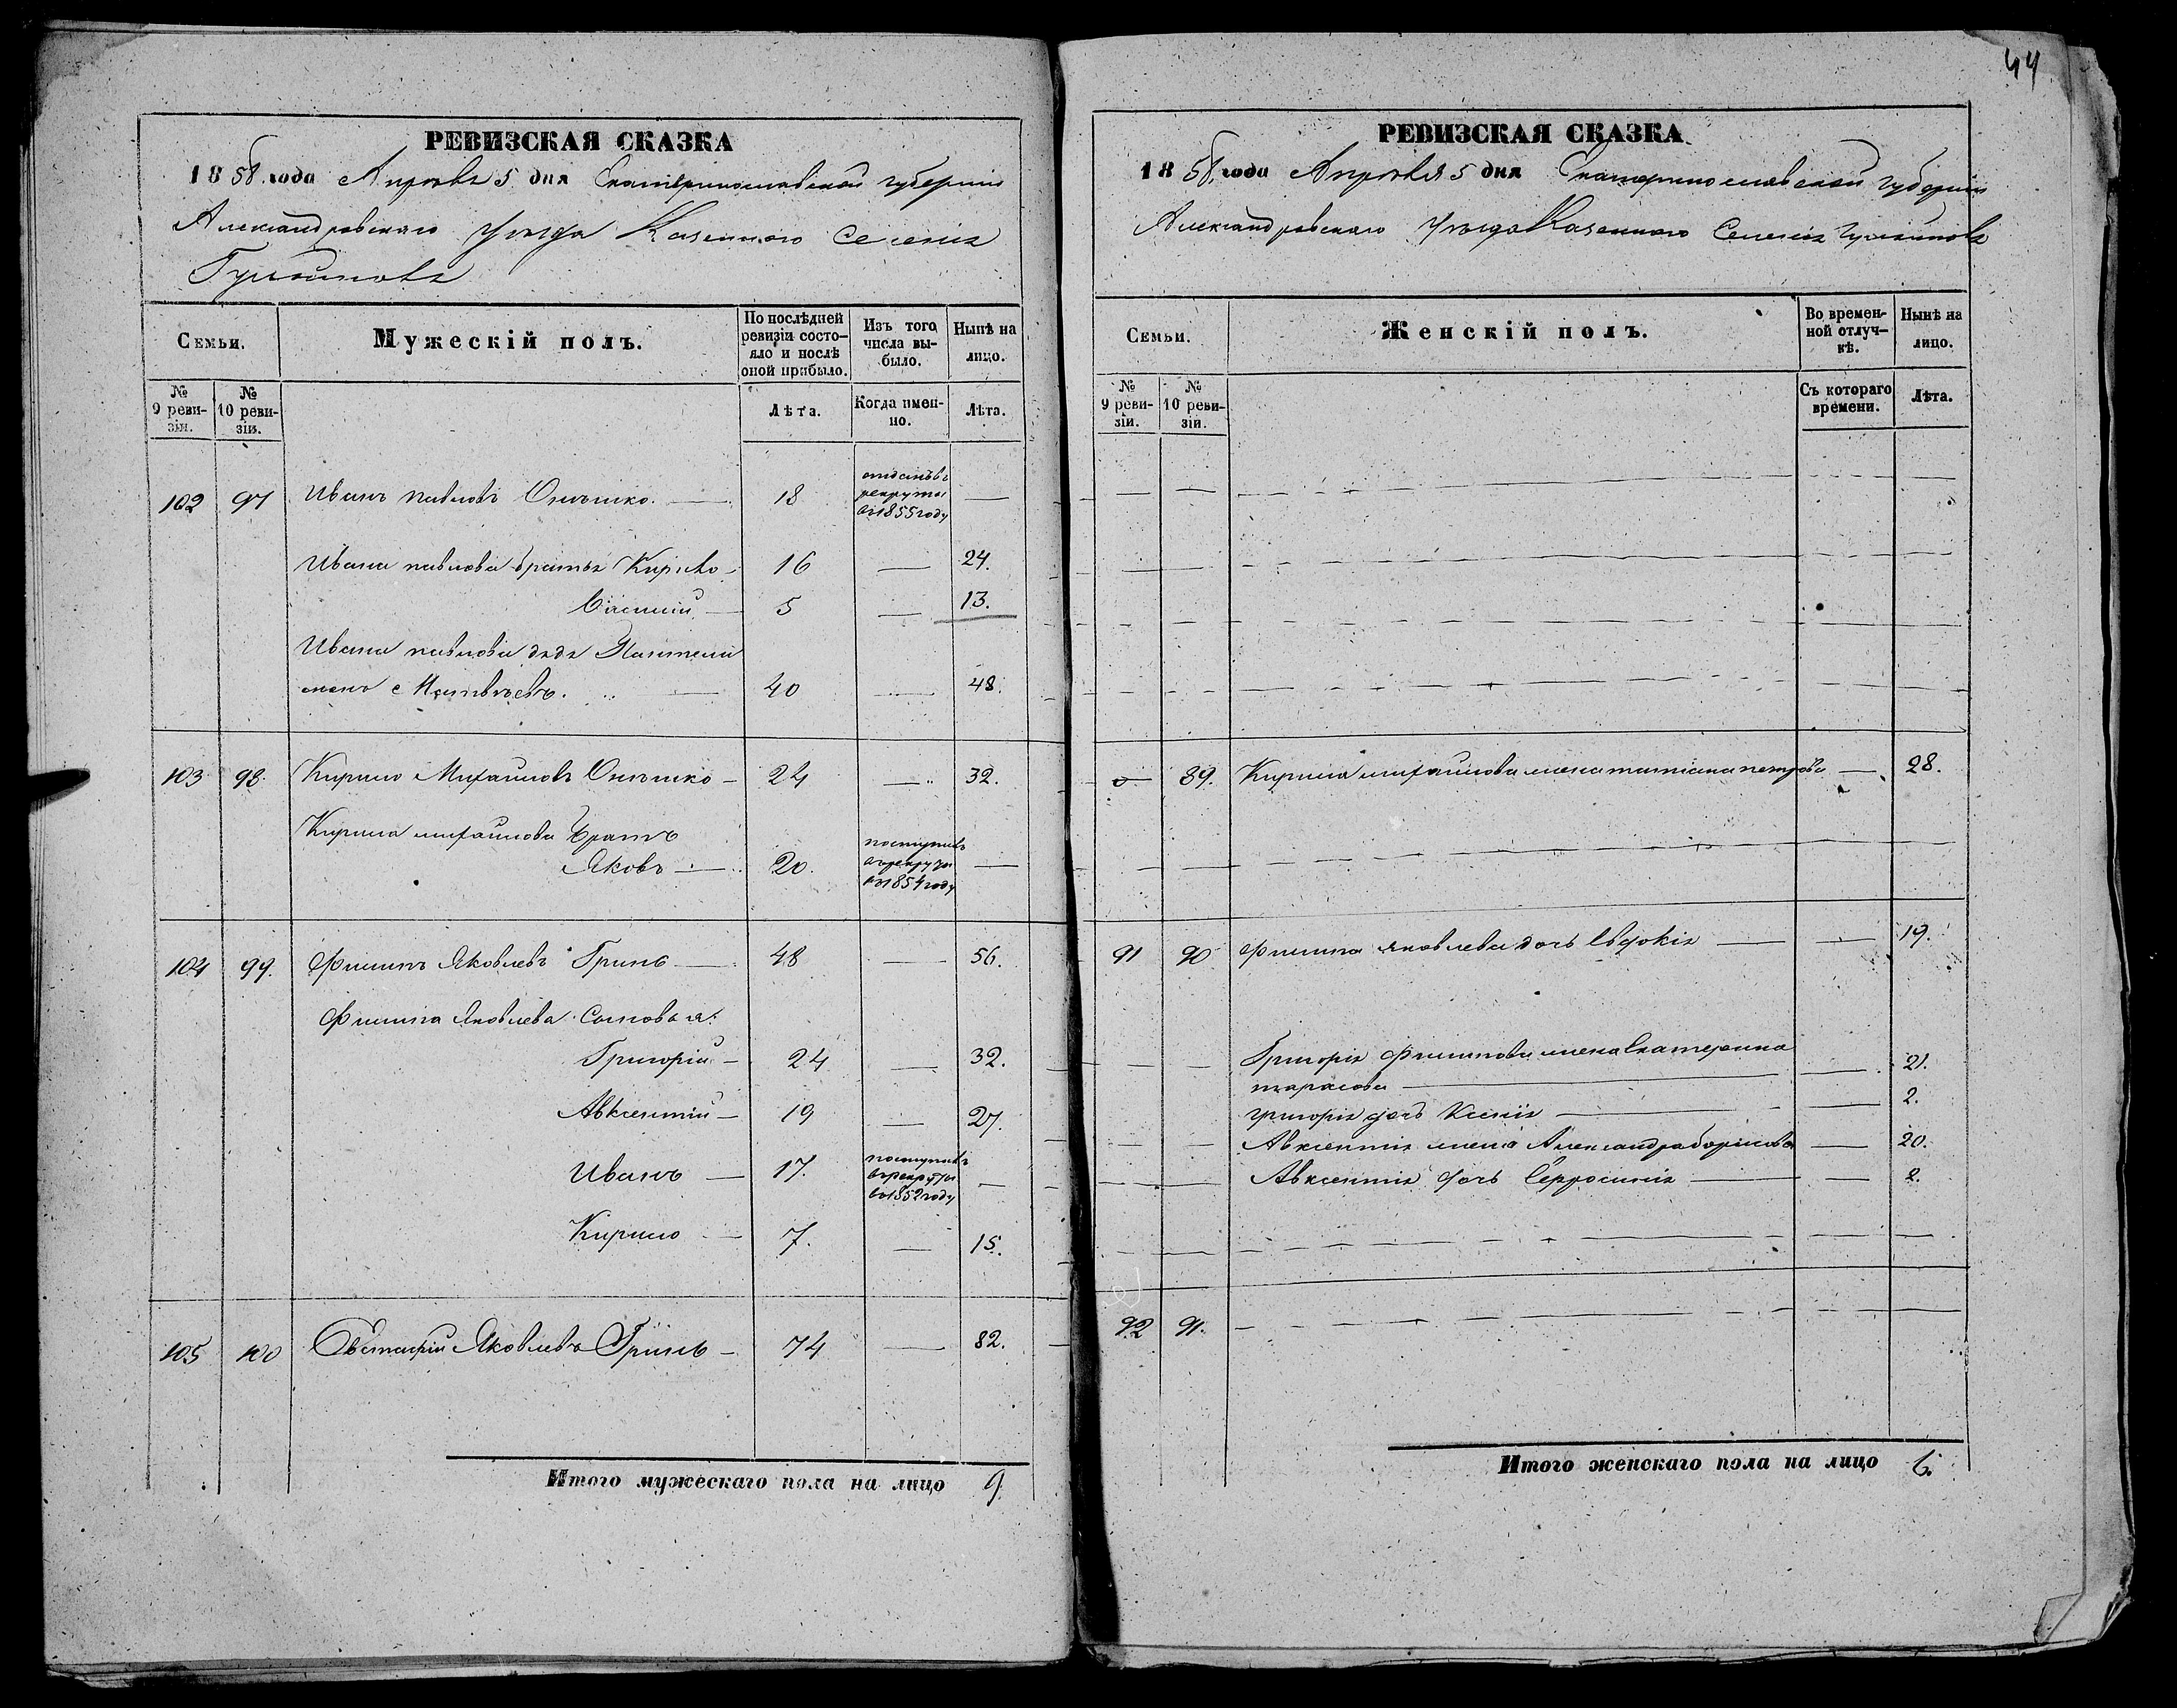 44
РЕВИЗСКАЯ СКАЗКА
1858 года Апрѣля 5 дня Екатеринославской губерніи
Александровскаго уѣзда Казенного Селенія
Гуляйполя
Семьи.
Мужескій полъ.
По послѣдней ревизіи состояло и послѣ оной прибыло.
Изъ того числа выбыло.
Нынѣ на лицо.
№ 9 ревизіи.
№ 10 ревизіи.
Лѣта.
Когда именно.
Лѣта.
102 97 Иванъ павловъ Онѣшко. — 18 отданъ въ рекруты въ 1855 году —
Ивана павлова братья Кирило — 16 — 24.
Василій — 5 — 13.
Ивана павлова дядя Пантели
монъ Матвѣевъ. — 40 — 48.
103 98. Кирило Михайловъ Онѣшко — 24 — 32.
Кирила михайлова братъ
Яковъ — 20. поступилъ въ рекруты въ 1854 году —
104 99. Филипъ Яковлевъ Гринь — 48 — 56.
Филипа Яковлева Сыновья:
Григорій — 24 — 32.
Авксентій — 19 — 27.
Иванъ — 17. поступилъ въ рекруты въ 1852 году —
Кирило — 7. — 15.
105 100 Евстафій Яковлевъ Гринь — 74 — 82.
Итого мужескаго пола на лицо 9.
РЕВИЗСКАЯ СКАЗКА
1858 года Апрѣля 5 дня Екатеринославской губерніи
Александровскаго уѣзда Казенного Селенія Гуляйполя
Семьи.
Женскій полъ.
Во временной отлучкѣ.
Нынѣ на лицо.
№ 9 ревизіи.
№ 10 ревизіи.
Съ котораго времени.
Лѣта.
89. Кирила михайлова жена татіана петрова — 28.
91 90 Филипа яковлева дочь Евдокія — — 19.
Григорія Филипова жена Екатерина
тарасова — — 21.
григорія дочь Ксенія — — 2.
Авксентія жена Александра борисова — 20.
Авксентія дочь Ефросинія — — 2.
92 91.
Итого женскаго пола на лицо 6.